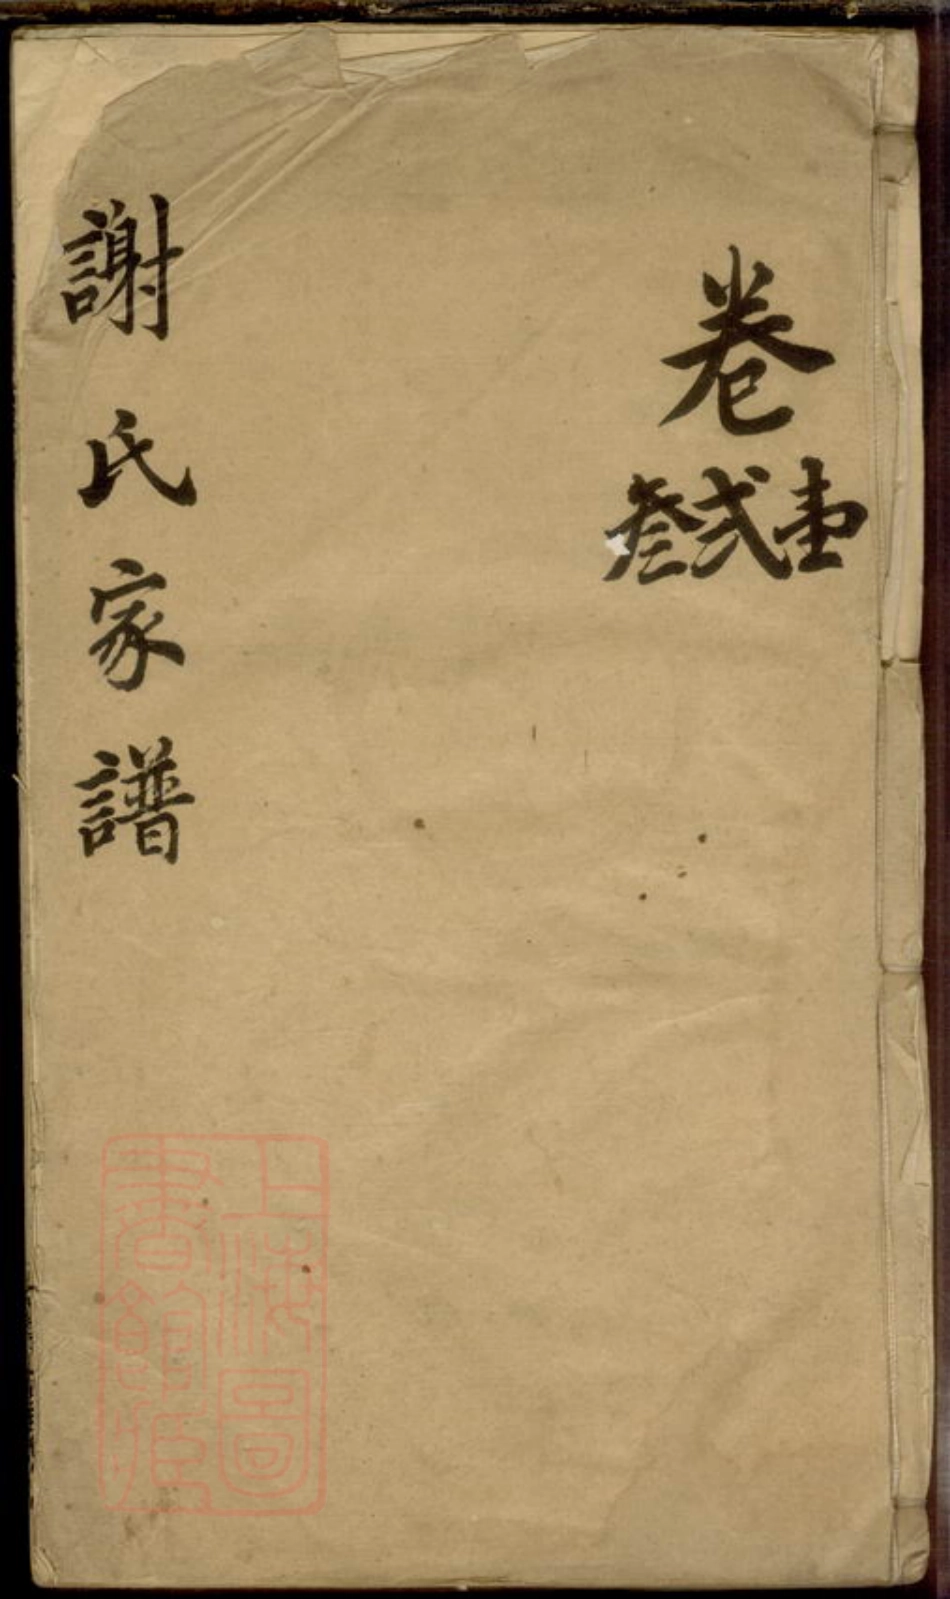 卷
壹弍叁
謝氏家譜
上海圖
書館藏